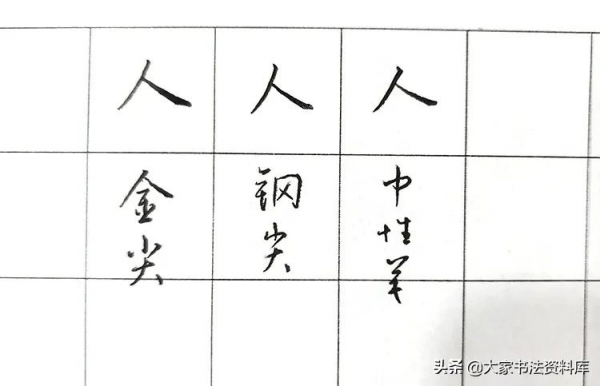 人 人 人
金尖
钢尖
中性笔
头条 @大家书法资料库